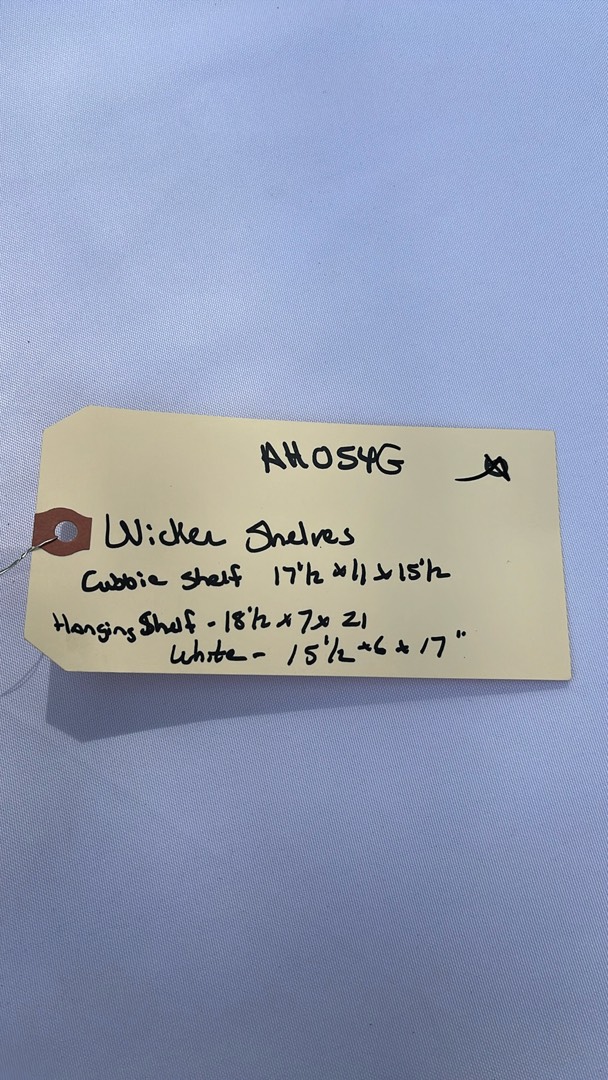 AH054G
Wicker Shelves
Cubbie Shelf 17 1/2 x 11 x 15 1/2
Hanging Shelf - 18 1/2 x 7 x 21
White - 15 1/2 x 6 x 17"